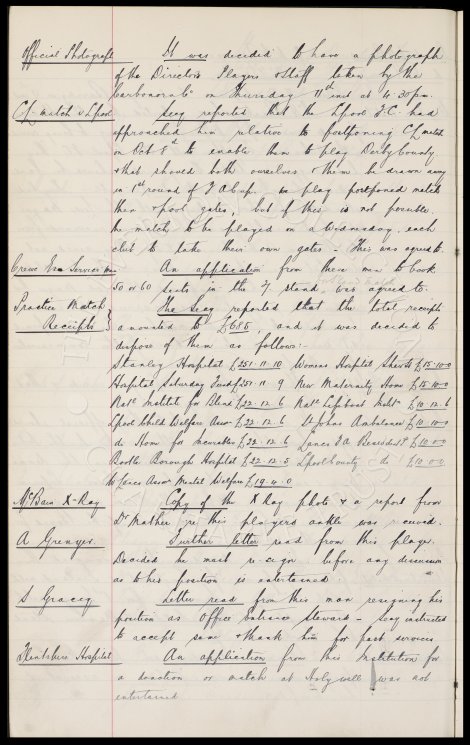 Official Photograph It was decided to have a photograph
of the Directors Players & Staff taken by the
"Carbonora Co" on Thursday 11th inst at 4.30pm.
C.L. match v Lpool Secy reported that the Lpool F.C. had
approached him relative to postponing C.L. match
on Oct 8th to enable them to play Derby County
& that should both ourselves & them be drawn away
in 1st round of F A Cup, we play postponed match
then & pool gates, but if this is not possible
the match to be played on a Wednesday, each
club to take their own gates - This was agreed to.
Crewe Service men An application from these men to book
50 or 60 seats in the stand, was agreed to.
Practice Match The Secy reported that the total receipts
Receipts amounted to £686, and it was decided to
dispose of them as follows:-
Stanley Hospital £251-11-10 Womens Hospital Shaw St £15-10-0
Hospital Saturday Fund £251-11-9 New Maternity Home £15-10-0
Natl Institute for Blind £22-12-6 Natl Lifeboat Instn £10-12-6
Lpool Child Welfare Assn £22-12-6 St Johns Ambulance £10-0-0
do Home for Incurables £22-12-6 Lancs F A Benevolt Fd £10-0-0
Bootle Borough Hospital £22-12-5 Lpool County do £10-0-0
W Lancs Assn Mental Welfare £19-4-0
McBain X-Ray Copy of the X Ray photo & a report from
Dr Mather re this players ankle was received.
A Grenyer. Further letter read from this player.
Decided he must re-sign before any discussion
as to his position is entertained.
S Gracey Letter read from this man resigning his
position as Office Entrance Steward - Secy instructed
to accept same & thank him for past services
Flintshire Hospital An application from this Institution for
a donation or match at Holywell was not
entertained